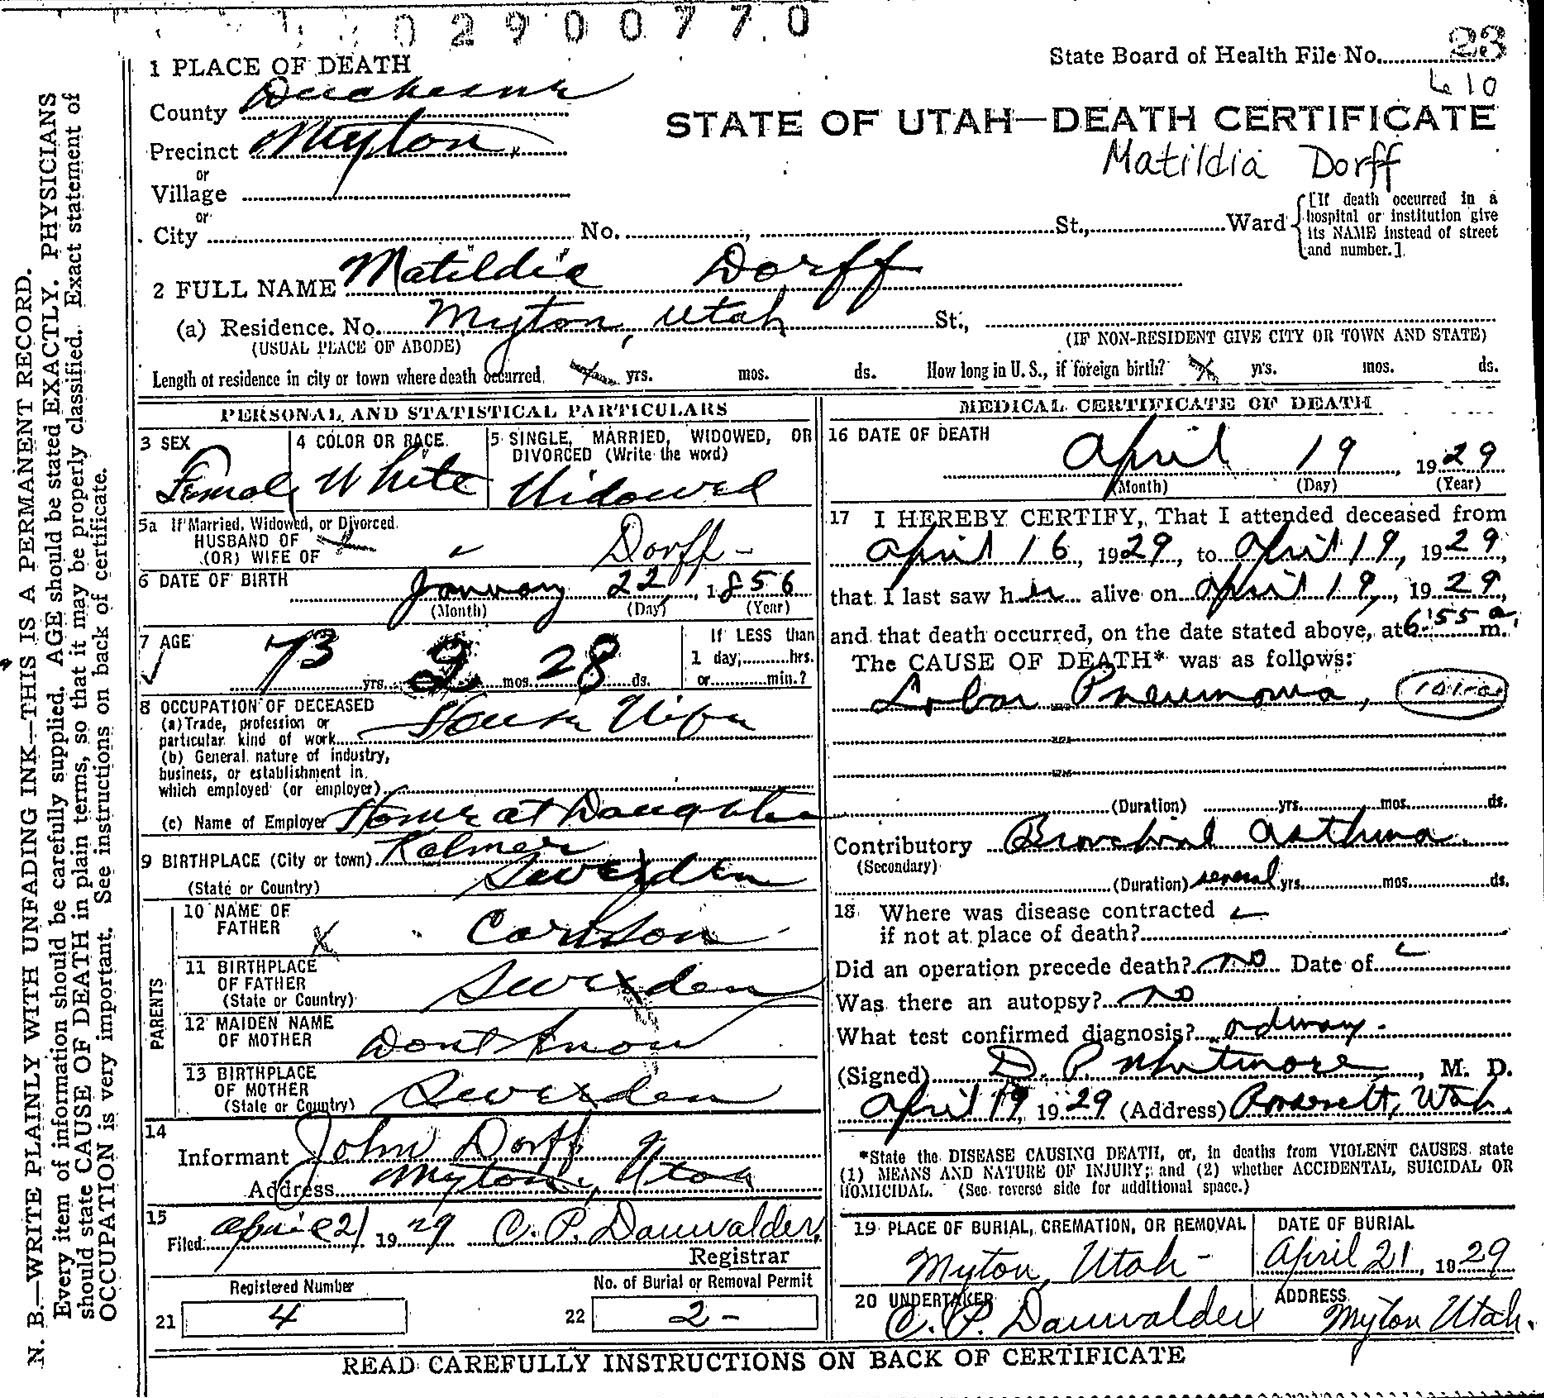 02900770
State Board of Health File No. 23
610
1 PLACE OF DEATH
County Duchesne
STATE OF UTAH—DEATH CERTIFICATE
Precinct Myton
Matildia Dorff
or
Village
or
City No. , St., Ward [If death occurred in a
hospital or institution give
its NAME instead of street
and number.]
2 FULL NAME Matildia Dorff
(a) Residence. No. Myton, Utah St.,
(USUAL PLACE OF ABODE) (IF NON-RESIDENT GIVE CITY OR TOWN AND STATE)
Length of residence in city or town where death occurred yrs. mos. ds. How long in U. S., if foreign birth? yrs. mos. ds.
PERSONAL AND STATISTICAL PARTICULARS
3 SEX 4 COLOR OR RACE. 5 SINGLE, MARRIED, WIDOWED, OR
DIVORCED (Write the word)
Female White Widowed
5a If Married, Widowed, or Divorced
HUSBAND OF
(OR) WIFE OF Dorff-
6 DATE OF BIRTH January 22, 1856
(Month) (Day) (Year)
7 AGE If LESS than
73 yrs. 2 mos. 28 ds. 1 day, hrs.
or min.?
8 OCCUPATION OF DECEASED
(a) Trade, profession or
particular kind of work House Wife
(b) General nature of industry,
business, or establishment in
which employed (or employer)
(c) Name of Employer Home at Daughter
9 BIRTHPLACE (City or town) Kalmer
(State or Country) Sweden
PARENTS
10 NAME OF
FATHER Carlson
11 BIRTHPLACE
OF FATHER
(State or Country) Sweden
12 MAIDEN NAME
OF MOTHER Dont know
13 BIRTHPLACE
OF MOTHER
(State or Country) Sweden
14
Informant John Dorff
Address Myton, Utah
15
Filed April 21 1929 C. P. Dauwalder,
Registrar
Registered Number No. of Burial or Removal Permit
21 4 22 2-
MEDICAL CERTIFICATE OF DEATH
16 DATE OF DEATH
April 19, 1929
(Month) (Day) (Year)
17 I HEREBY CERTIFY, That I attended deceased from
April 16, 1929, to April 19, 1929,
that I last saw her alive on April 19, 1929,
and that death occurred, on the date stated above, at 6:55 a m.
The CAUSE OF DEATH* was as follows:
Lobar Pneumonia,
(Duration) yrs. mos. ds.
Contributory Bronchial asthma.
(Secondary)
(Duration) several yrs. mos. ds.
18 Where was disease contracted
if not at place of death?
Did an operation precede death? no Date of
Was there an autopsy? no
What test confirmed diagnosis? ordinary.
(Signed) D. P. Whitmore, M. D.
April 19, 1929 (Address) Roosevelt, Utah.
*State the DISEASE CAUSING DEATH, or, in deaths from VIOLENT CAUSES, state
(1) MEANS AND NATURE OF INJURY; and (2) whether ACCIDENTAL, SUICIDAL OR
HOMICIDAL. (See reverse side for additional space.)
19 PLACE OF BURIAL, CREMATION, OR REMOVAL DATE OF BURIAL
Myton, Utah- April 21, 1929
20 UNDERTAKER ADDRESS
C. P. Dauwalder Myton Utah.
READ CAREFULLY INSTRUCTIONS ON BACK OF CERTIFICATE
N. B.—WRITE PLAINLY WITH UNFADING INK—THIS IS A PERMANENT RECORD.
Every item of information should be carefully supplied. AGE should be stated EXACTLY. PHYSICIANS
should state CAUSE OF DEATH in plain terms, so that it may be properly classified. Exact statement of
OCCUPATION is very important. See instructions on back of certificate.